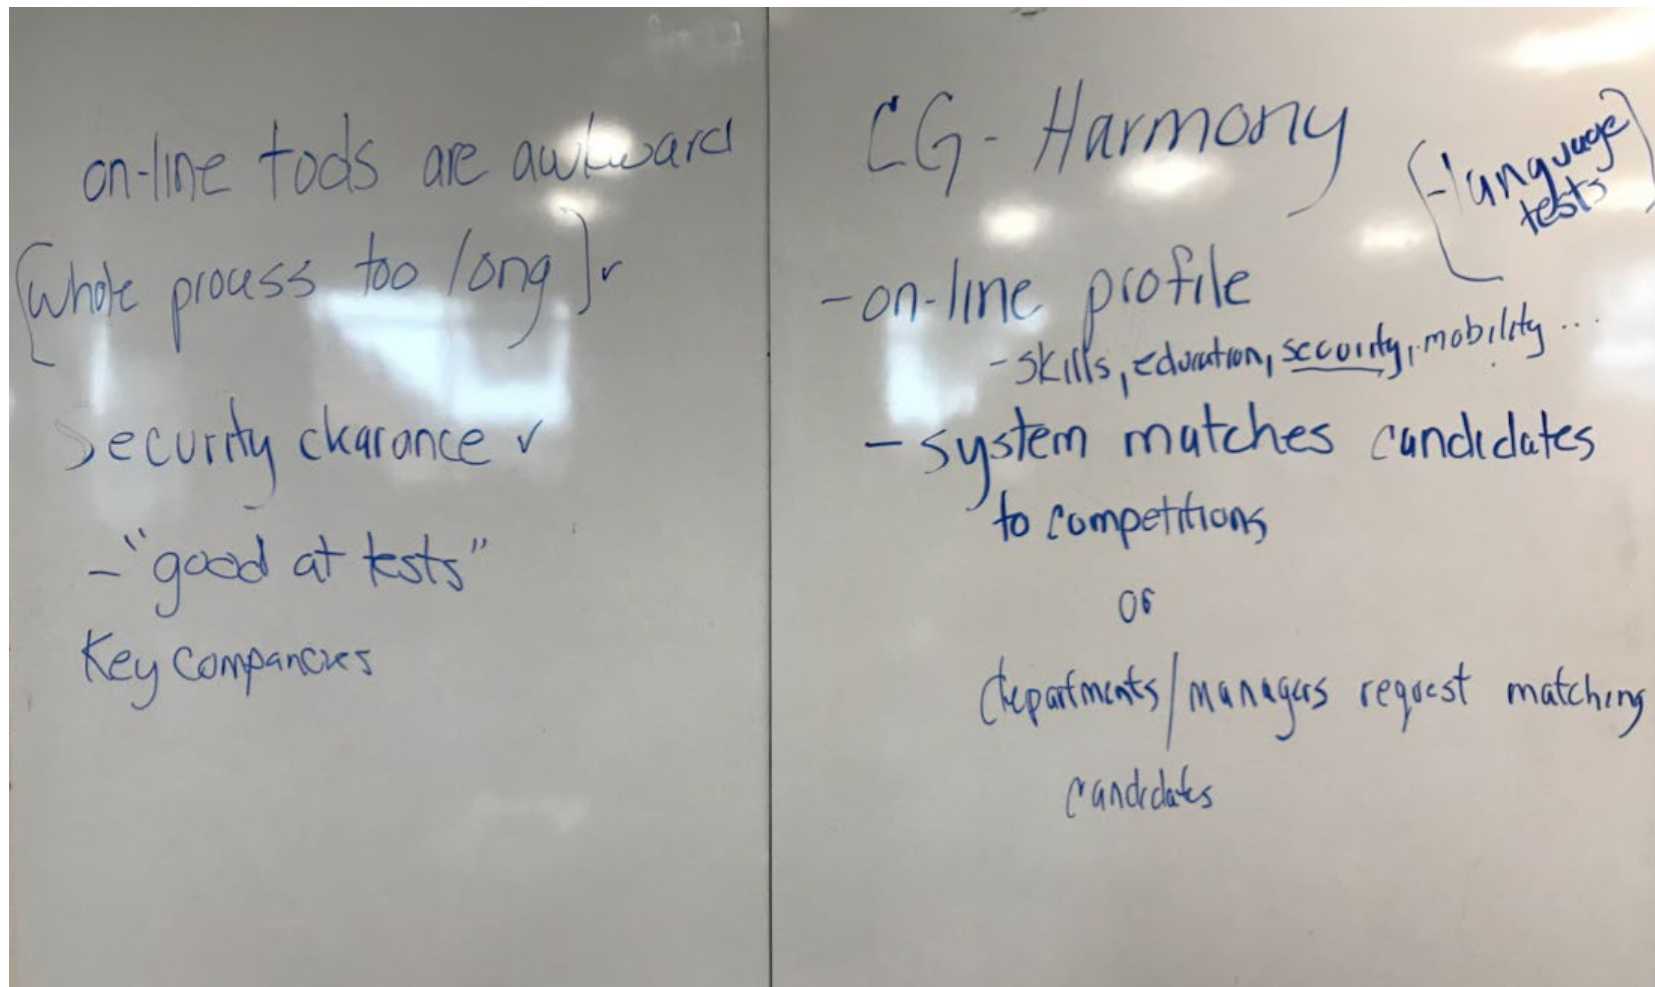 on-line tools are awkward
[whole process too long] ✓
Security clearance ✓
- "good at tests"
Key Compancies
CG - Harmony
[- language
tests]
- on-line profile
- skills, education, security, mobility ...
- system matches candidates
to competitions
or
departments/managers request matching
candidates